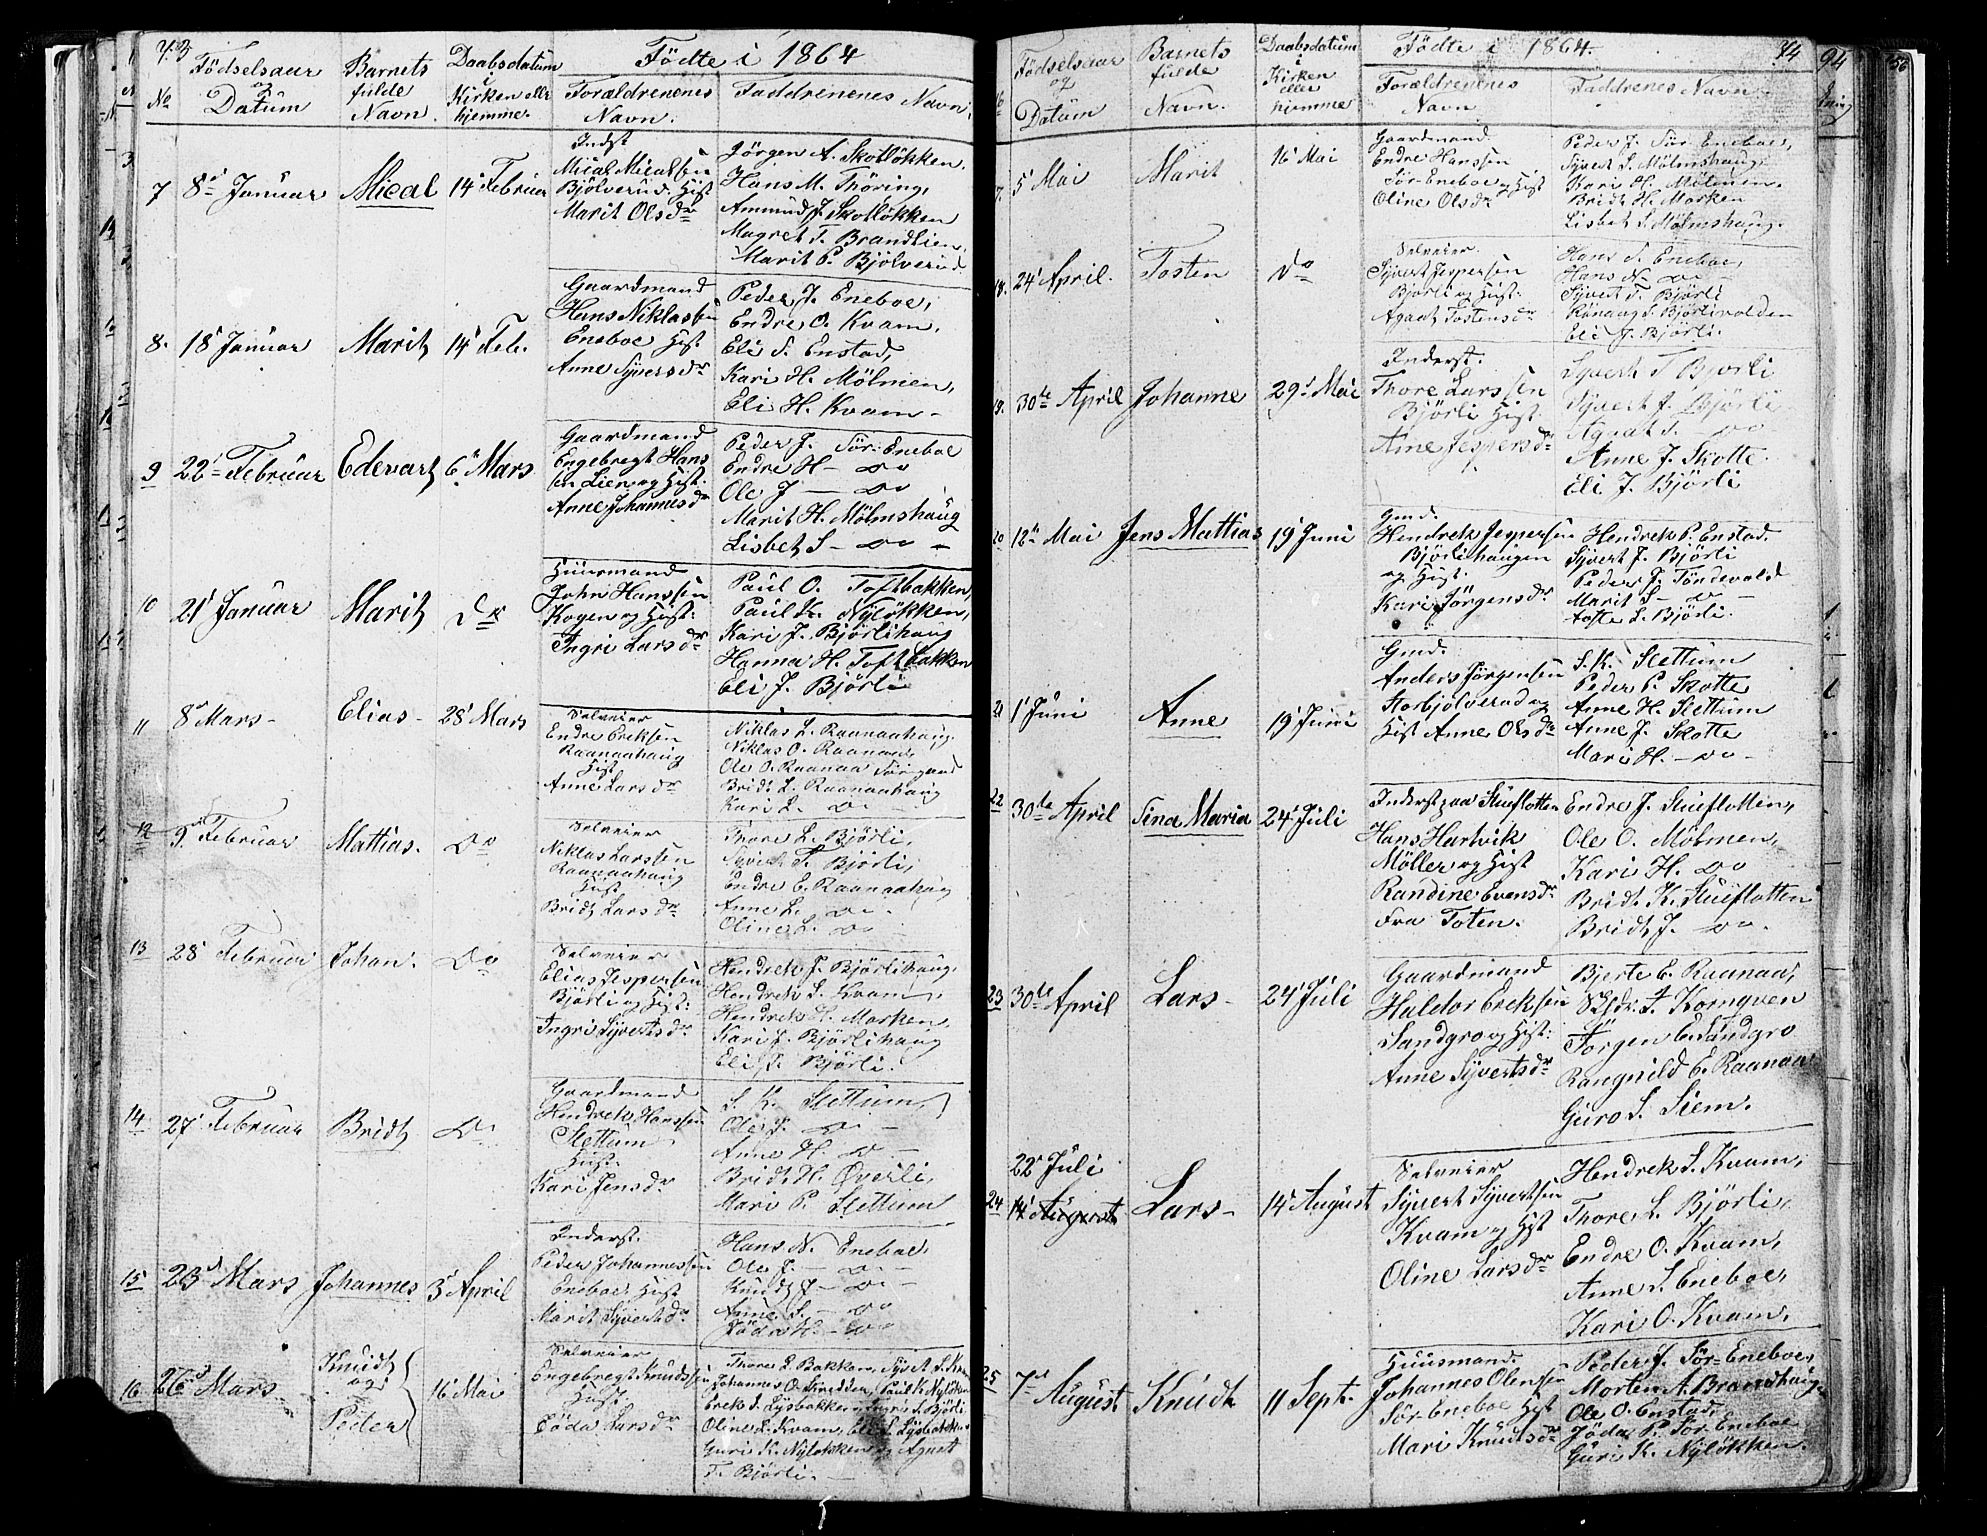 73
Födte i 1864
Födselsaar
&
Datum
Barnets
fulde
Navn.
Daabsdatum
i
Kirken elle
hjemme.
Forældrenenes
Navn.
Faddrenenes Navn.
No
7
8de Januar
Mical
14 Februar
Indst
Mical Micalsen
Bjölverud. Hust
Marit Olsdr
Jörgen A. Skotlökken.
Hans M. Thöring,
Ammund J. Skotlökken
Magret T. Brandlien
Marit P. Bjölverud.
8.
18 Januar
Marit
14 Feb.
Gaardmand
Hans Niklassen
Eneboe Hust
Anne Syversdr
Peder J. Eneboe,
Endre O. Kvam,
Eli S. Enstad,
Kari H. Mölmen,
Eli H. Kvam -
9
22 Februar
Edevart
6 Mars
Gaardmand
Engebregt Hans
sen Lien og Hust.
Anne Johannesdr
Peder J. Sör-Eneboe
Endre H - do
Ole J - do
Marit H. Mölmshaug
Lisbet S - do -
10
21 Januar
Marit
do
Huusmand
John Hanssen
Kogen og Hust:
Ingri Larsdr
Paul O. Toftbakken,
Paul K. Nylökken,
Kari J. Björlihaug
Hanna H. Toftbakken
Eli J. Björli
11
8 Mars -
Elias -
28 Mars
Selveier
Endre Eriksen
Raanaahaug
Hust
Anne Larsdr
Niklas L. Raanaahaug.
Niklas O. Raanaa,
Ole O. Raanaa Sörgaard
Bridt L. Raanaahaug
Kari L. do -
12
9 Februar
Mattias.
do
Selveier
Niklas Larssen
Raanaahaug
Hust
Bridt Larsdr
Thore L. Björli,
Syvert T. Björli,
Endre E. Raanaahaug
Anne L. do -
Oline L. do
13
28 Februar
Johan.
do
Selveier
Elias Jespersen
Björli og Hust:
Ingri Syvertsdr
Hendrek J. Björlihaug,
Hendrek S. Kvam,
Hendrek H. Marken,
Kari J. Björlihaug
Eli J. Björli.
14
27 Februar
Bridt
do
Gaardmand
Hendrek Hanssen
Slettum
Hust.
Kari Jensdr
S. K. Slettum,
Ole J. do -
Anne H. do -
Bridt H. Øverli,
Mari P. Slettum
15
23d Mars
Johannes
3 April
Inderst.
Peder Johannessen
Eneboe Hust
Marit Syvertsdr
Hans N. Eneboe,
Ole J. - do -
Knudt J - do -
Anne S. - do
Jöda H. - do
16
26d Mars
Knudt
og
Peder
16 Mai
Selveier
Engebregt Knudssen
Hust
Jöda Larsdr
Thore L. Bakken, Syvert S. Kvam
Johannes O. Skredder, Paul K. Nylökken
Erek S. Lysbakken, Ingri S. Björli
Oline L. Kvam, Eli S. Lysbakken
Guri K. Nylökken og Agaat
T. Björli. -
74
Födte i 1864.
Födselsaar
og
Datum
Barnets
fulde
Navn.
Daabsdatum
i
Kirken
eller
hjemme
Forældrenenes
Navn
Faddrenes Navn.
7.
5 Mai
Marit
16 Mai
Gaardmand
Endre Hanssen
Sör-Eneboe og Hust
Oline Olsdr
Peder J. Sör-Eneboe,
Syvert S. Mölmshaug,
Kari H. Mölmen,
Bridt H. Marken
Lisbet S. Mölmshaug.
18.
24 April.
Tosten
do
Selveier
Syvert Jespersen
Bjorli og Hust.
Agaat Tostensdr
Hans S. Eneboe,
Hans N - do -
Syvert T. Björli
Rönnaug S. Björlivolden
Eli J. Björli.
19.
30te April
Johanne
29 Mai
Inderst.
Thore Larssen
Björli Hust
Anne Jespersdr
Syvert T Bjorli
Syvert J. Björli
Agaat T. do
Anne J. Skotte.
Eli J. Björli
20
12te Mai
Jens Mattias
19 Juni
Gmd.
Hendrek Jespersen
Björlihaugen
og Hust.
Kari Jörgensdr
Hendrek P. Enstad
Syvert J. Björli
Peder J. Töndevold
Marit S - do -
Aaste L. Bjödli.
21
1 Juni
Anne
19 Juni
Gmd.
Anders Jörgensen
Storbjolverud og
Hust Anne Olsdr
S. K. Slettum
Peder P. Skotte
Anne H. Slettum
Anne J. Skotte
Mari H. - do -
22
30te April
Sina Maria
24 Juli
Inderst paa Stueflotten
Hans Hartvik
Möller og Hust
Randine Evensdr
Fra Toten.
Endre J. Stueflotten,
Ole O. Mölmen,
Kari H. do
Bridt K. Stueflotten
Bridt J. - do -
23
30te April
Lars -
24 Juli
Gaardmand
Haldor Ereksen
Sandgro og Hust:
Anne Syvertsdr
Bjerte E. Raanaa,
J. Korngven
Jörgen E. Sandgro
Rangnild E. Raanaa
Guro S. Siem.
24
22 Juli
14 August
Lars -
14 August
Selveier
Syvert Syvertsen
Kvam og Hust
Oline Larsdr
Hendrek S. Kvam,
Thore L. Björli,
Endre O. Kvam,
Anne S. Eneboe,
Kari O. Kvam.
25
7de August
Knudt
11 Sept.
Huusmand.
Johannes Olensen
Sör-Eneboe Hust
Mari Knudsdr
Peder J. Sör-Eneboe,
Morten A. Brandhaug
Ole O. Enstad,
Jöda P. Sör-Eneboe
Guri K. Nylökken.
94